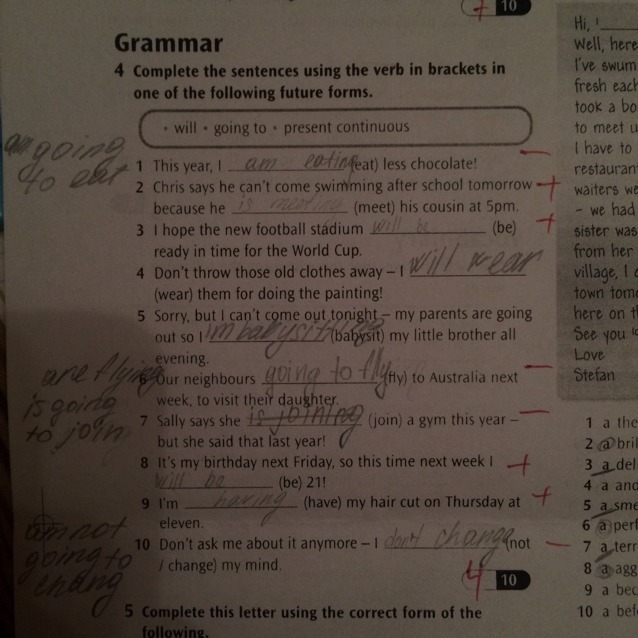 7 10
Grammar
4 Complete the sentences using the verb in brackets in
one of the following future forms.
• will • going to • present continuous
am going
to eat
1 This year, I am eating (eat) less chocolate! −
2 Chris says he can't come swimming after school tomorrow +
because he is meeting (meet) his cousin at 5pm.
3 I hope the new football stadium will be (be) +
ready in time for the World Cup.
4 Don't throw those old clothes away – I will wear
(wear) them for doing the painting!
5 Sorry, but I can't come out tonight – my parents are going
out so I 'm babysitting (babysit) my little brother all
evening.
are flying
6 Our neighbours going to fly (fly) to Australia next −
week, to visit their daughter.
is going
to join
7 Sally says she is joining (join) a gym this year – −
but she said that last year!
8 It's my birthday next Friday, so this time next week I +
will be (be) 21!
9 I'm having (have) my hair cut on Thursday at +
eleven.
am not
going to
chang
10 Don't ask me about it anymore – I don't change (not −
/ change) my mind.
4 10
5 Complete this letter using the correct form of the
following.
Hi, 1
Well, here
I've swum
fresh each
took a bo
to meet u
I have to
restauran
waiters we
– we had
sister was
from her
village, I
town tom
here on t
See you
Love
Stefan
1 a the
2 a bril
3 a del
4 a and
5 a sme
6 a perf
7 a terr
8 a agg
9 a bec
10 a bef